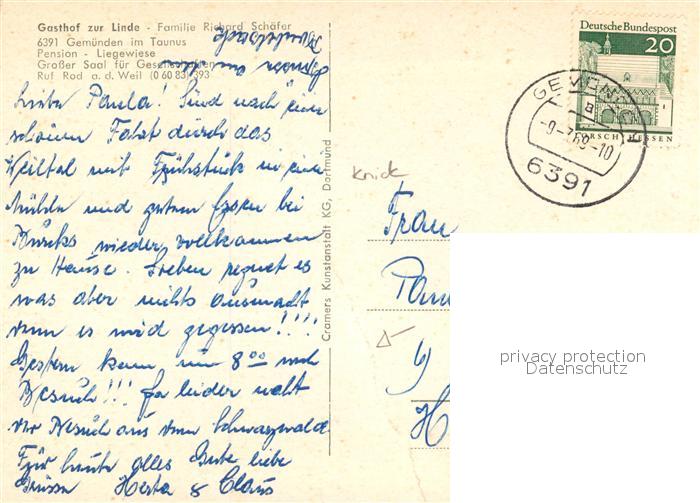 Gasthof zur Linde - Familie Richard Schäfer
6391 Gemünden im Taunus
Pension - Liegewiese
Großer Saal für Gesellschaften
Ruf Rod a. d. Weil (0 60 83) 393
Liebe Paula! Sind nach einer
schönen Fahrt durch das
Weiltal mit Frühstück in einer
Mühle und gutem Essen bei
wieder vollkommen
zu Hause. Soeben regnet es
was aber nichts ausmacht
denn es wird gegessen!!!!
Gestern kam um 8 00 noch
Besuch!!! Ja leider nicht
der Besuch aus dem Schwarzwald.
Für heute alles Gute liebe
Grüsse Herta & Claus
Cramers Kunstanstalt KG, Dortmund
Knick
Frau
Deutsche Bundespost
20
LORSCH HESSEN
a
-9-7.69-10
6391
privacy protection
Datenschutz